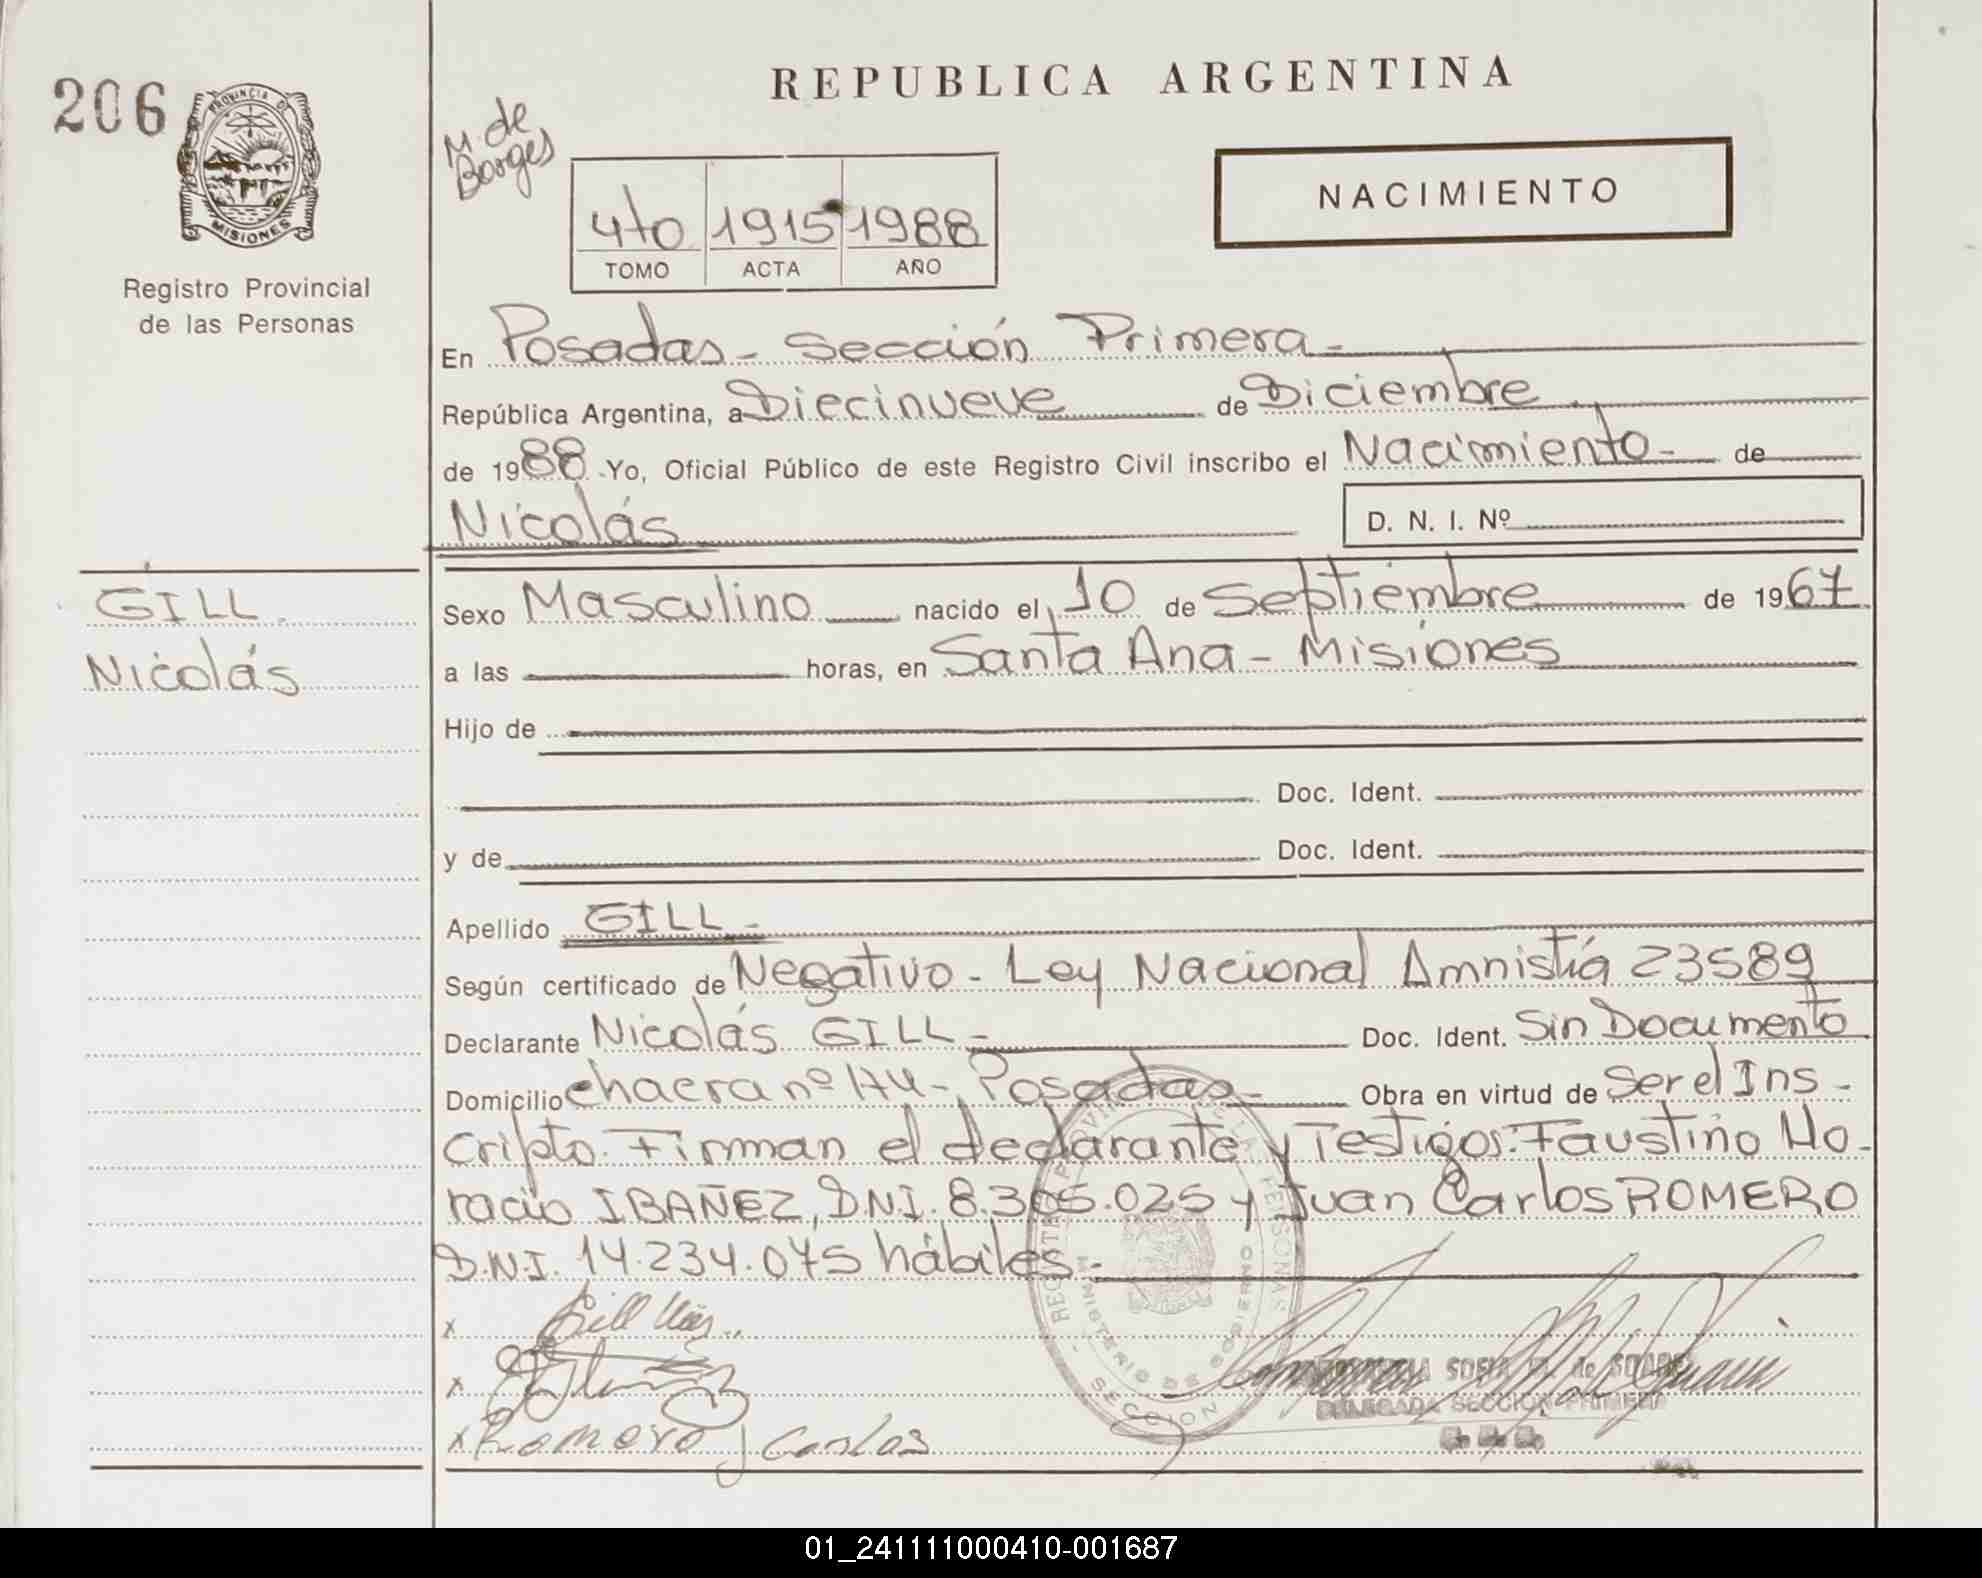 206
PROVINCIA DE
MISIONES
Registro Provincial
de las Personas
REPUBLICA ARGENTINA
M. de
Borges
4to 1915 1988
TOMO ACTA AÑO
NACIMIENTO
En Posadas - Sección Primera -
República Argentina, a Diecinueve de Diciembre
de 1988 - Yo, Oficial Público de este Registro Civil inscribo el Nacimiento - de
Nicolás
D. N. I. Nº
GILL
Nicolás
Sexo Masculino nacido el 10 de Septiembre de 1967
a las horas, en Santa Ana - Misiones
Hijo de
Doc. Ident.
y de Doc. Ident.
Apellido GILL -
Según certificado de Negativo - Ley Nacional Amnistía 23589
Declarante Nicolás GILL - Doc. Ident. Sin Documento
Domicilio chacra nº 174 - Posadas - Obra en virtud de Ser el Ins -
cripto. Firman el declarante y Testigos: Faustino Ho -
racio IBAÑEZ, D.N.I. 8.365.025 y Juan Carlos ROMERO
D.N.I. 14.234.075 hábiles -
x Gill
x
x Romero J Carlos
MINISTERIO DE GOBIERNO
SECCION
SOFIA M. de
DELEGADA SECCION PRIMERA
01_241111000410-001687